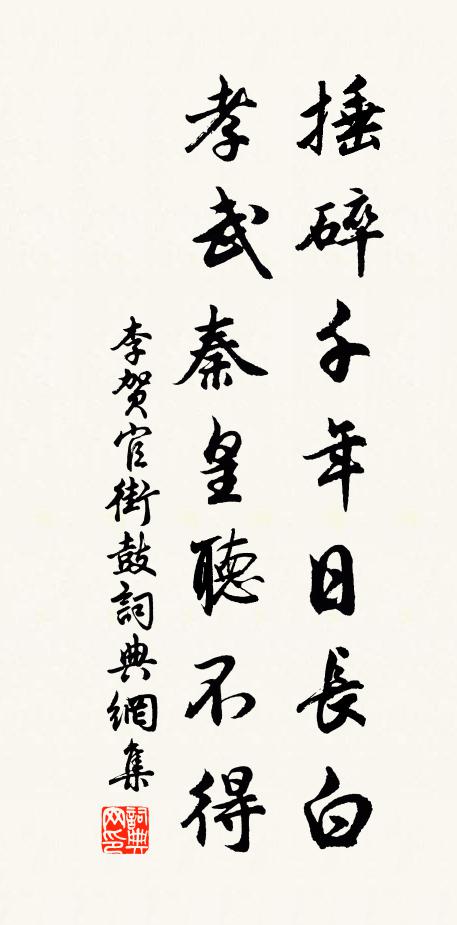 捶碎千年日長白
孝武秦皇聽不得
李贺官街鼓詞典網集
詞典网印